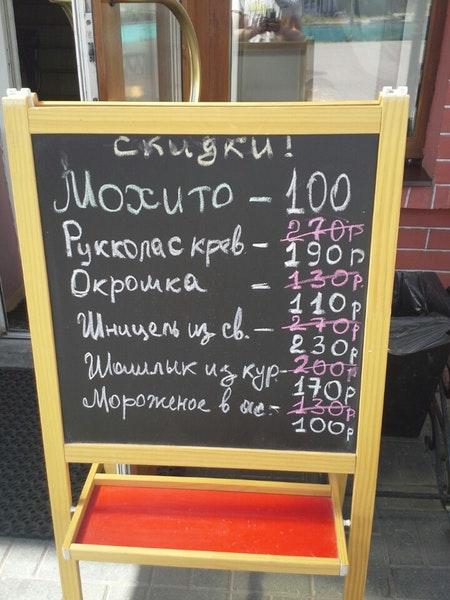 скидки!
Мохито - 100
Рукколас крев - 270р
190р
Окромка - 130р
110р
Шницель из св. - 270р
230р
Шашлык из кур - 200р
170р
Мороженое в ас. - 130р
100р